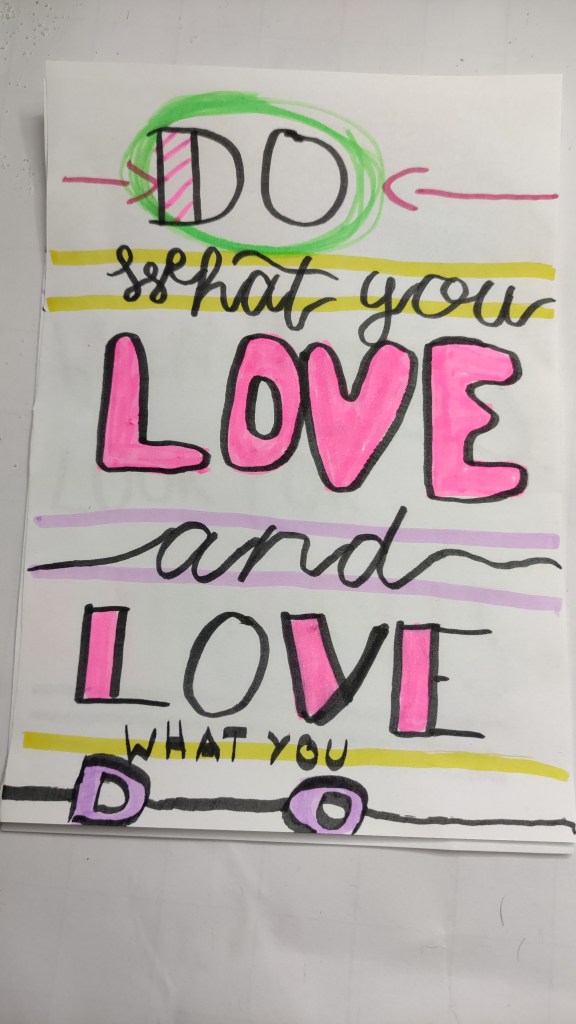 DO
what you
LOVE
and
LOVE
WHAT YOU
DO